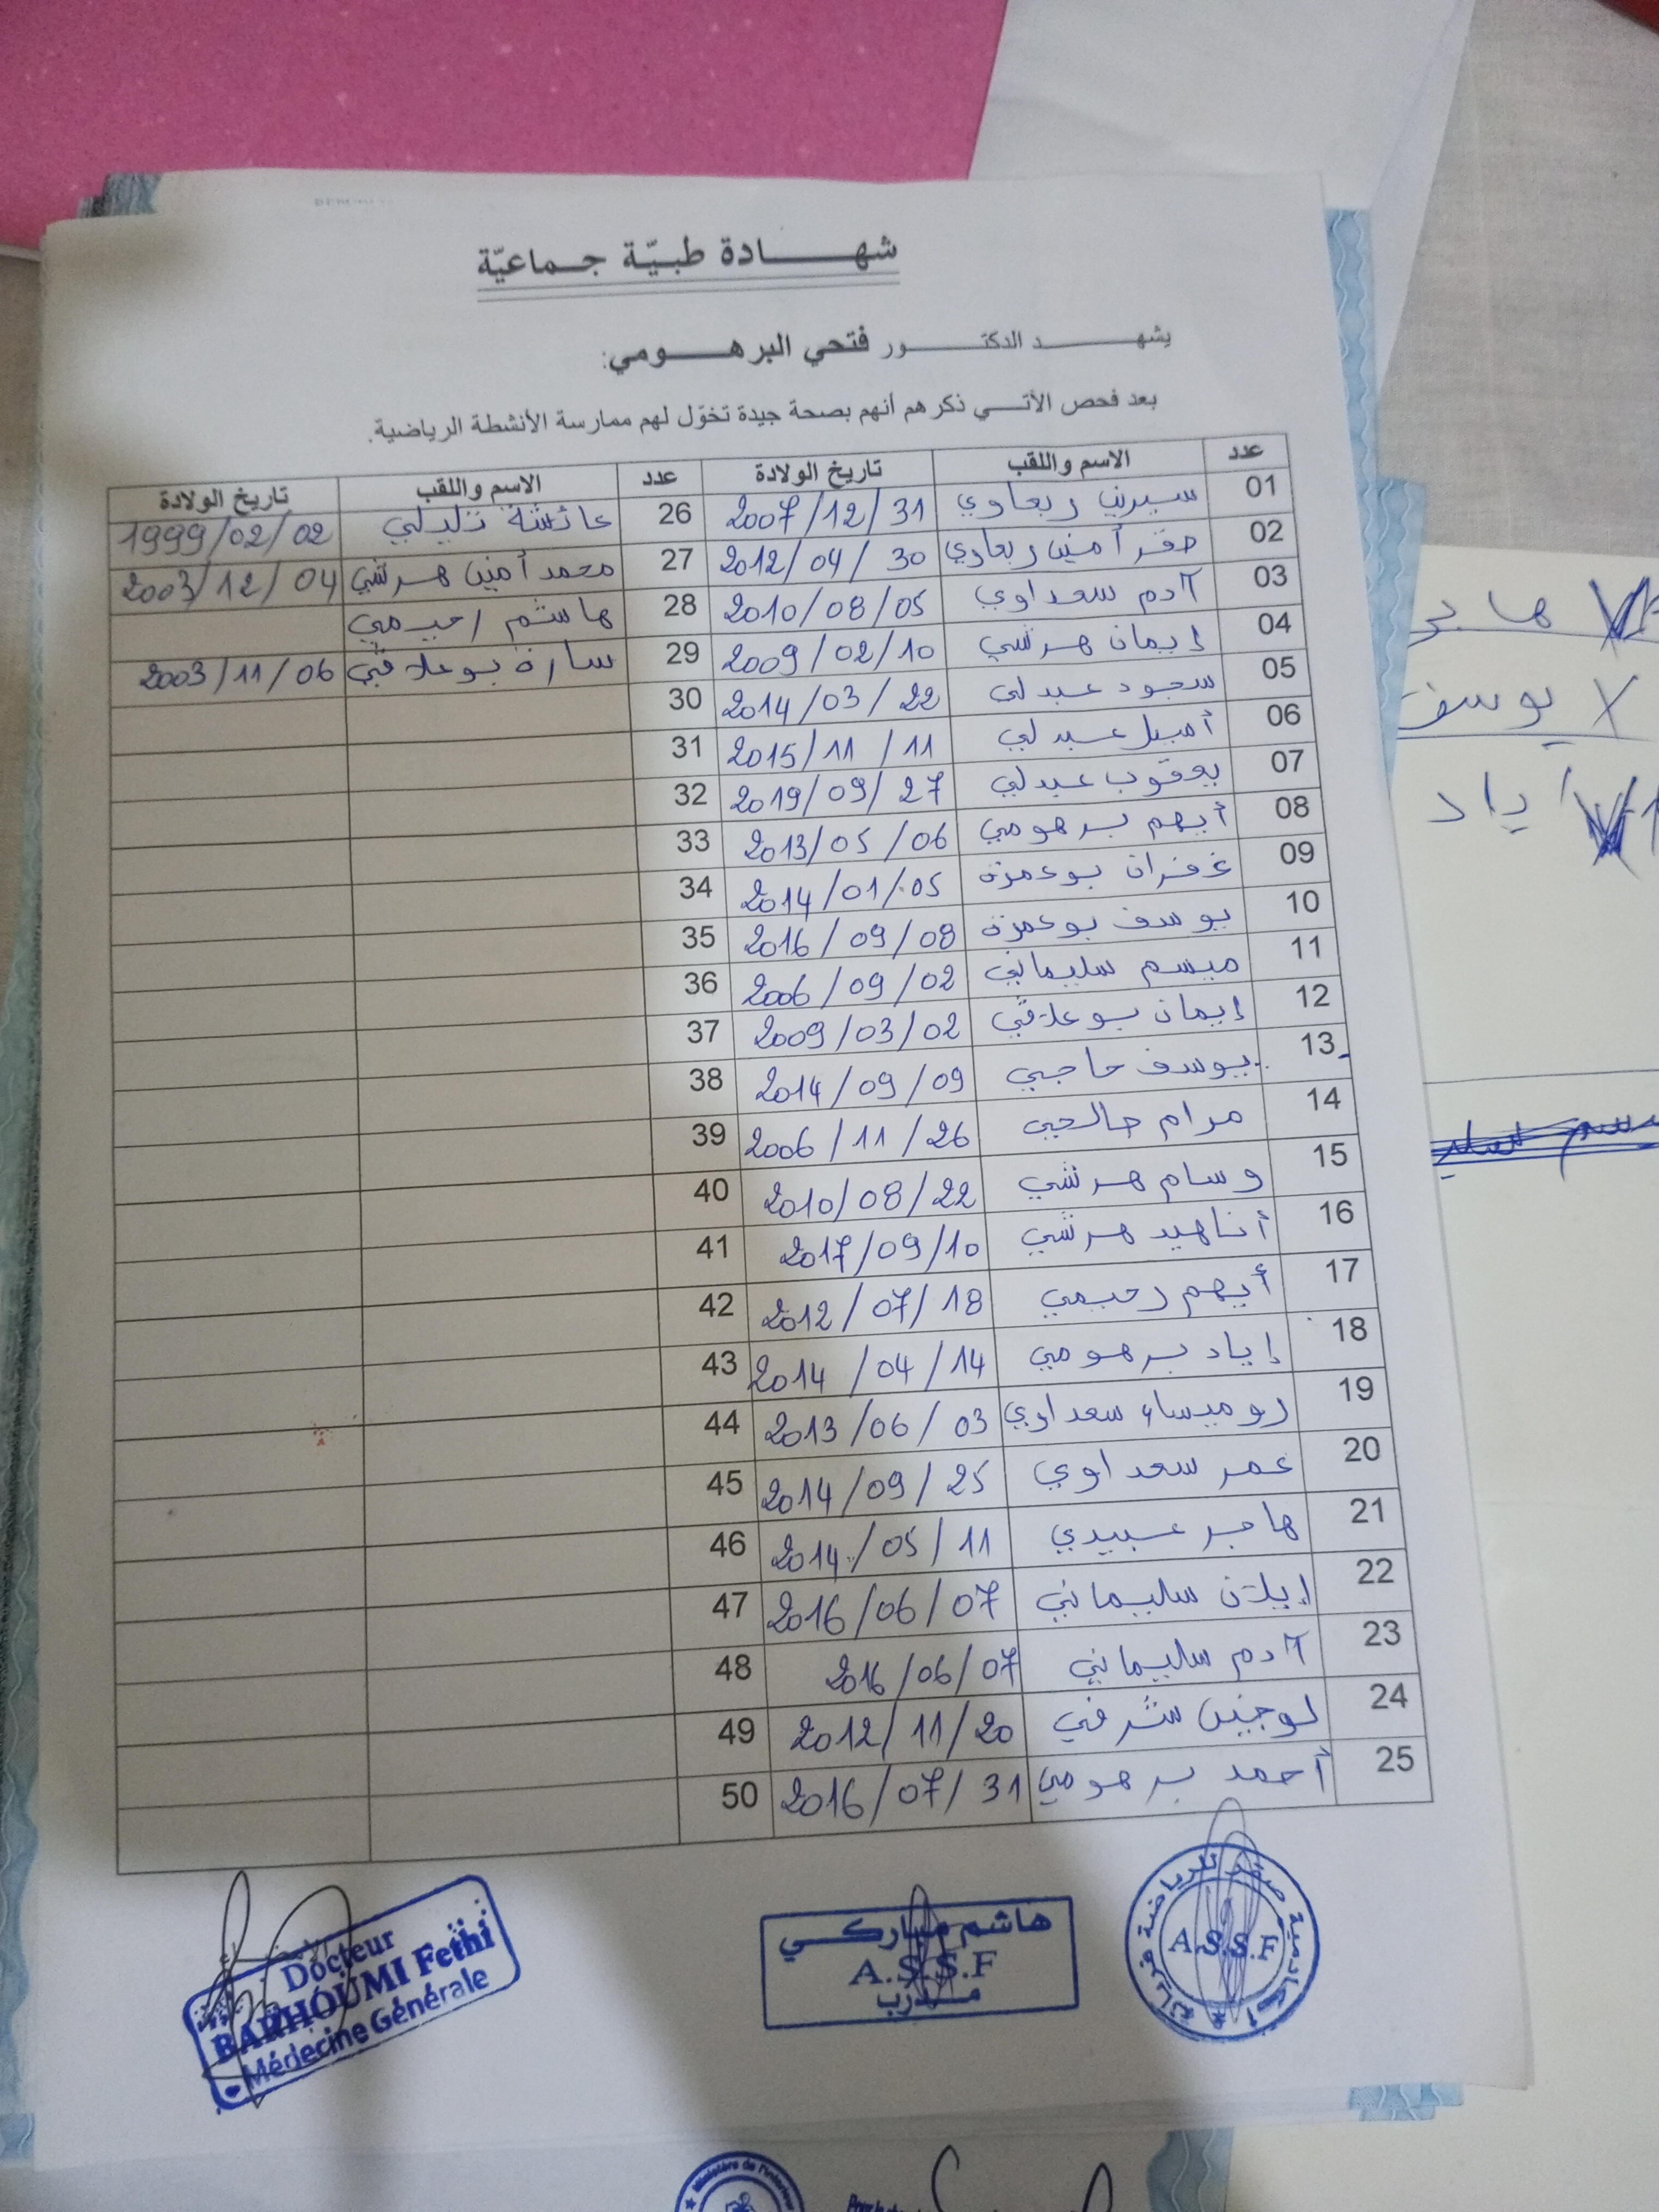 شهـــادة طبـيّـة جـمـاعيّـة
يشهـــد الدكتـــور فتحي البرهـــومي:
بعد فحص الأتـــي ذكرهم أنهم بصحة جيدة تخوّل لهم ممارسة الأنشطة الرياضية.
عدد الاسم واللقب تاريخ الولادة عدد الاسم واللقب تاريخ الولادة
01 سيرين ربعاوي 2007/12/31 26 عائشة 1999/02/02
02 صقر أمين ربعاوي 2012/04/30 27 محمد أمين هرشي 2003/12/04
03 آدم سعداوي 2010/08/05 28 هاشم رحيمي
04 إيمان هرشي 2009/02/10 29 سارة بوعلاقي 2003/11/06
05 سجود عبدلي 2014/03/22 30
06 أميل عبدلي 2015/11/11 31
07 يعقوب عبدلي 2019/09/27 32
08 أيهم برهومي 2013/05/06 33
09 غفران بوعمزة 2014/01/05 34
10 يوسف بوعمزة 2016/09/08 35
11 ميسم سليماني 2006/09/02 36
12 إيمان بوعلاقي 2009/03/02 37
13 يوسف حاجي 2014/09/09 38
14 مرام صالحي 2006/11/26 39
15 وسام هرشي 2010/08/22 40
16 أناهيد هرشي 2017/09/10 41
17 أيهم رحيمي 2012/07/18 42
18 إياد برهومي 2014/04/14 43
19 روميساء سعداوي 2013/06/03 44
20 عمر سعداوي 2014/09/25 45
21 هاجر عبيدي 2014/05/11 46
22 إيلان سليماني 2016/06/07 47
23 آدم سليماني 2016/06/07 48
24 لوجين شرفي 2012/11/20 49
25 أحمد برهومي 2016/07/31 50
Docteur
BARHOUMI Fethi
Médecine Générale
هاشم مباركـــي
A.S.S.F
مـــدرب
أكاديمية صقر للرياضة فريانة
A.S.S.F
يوسف
Ministère de l'Intérieur